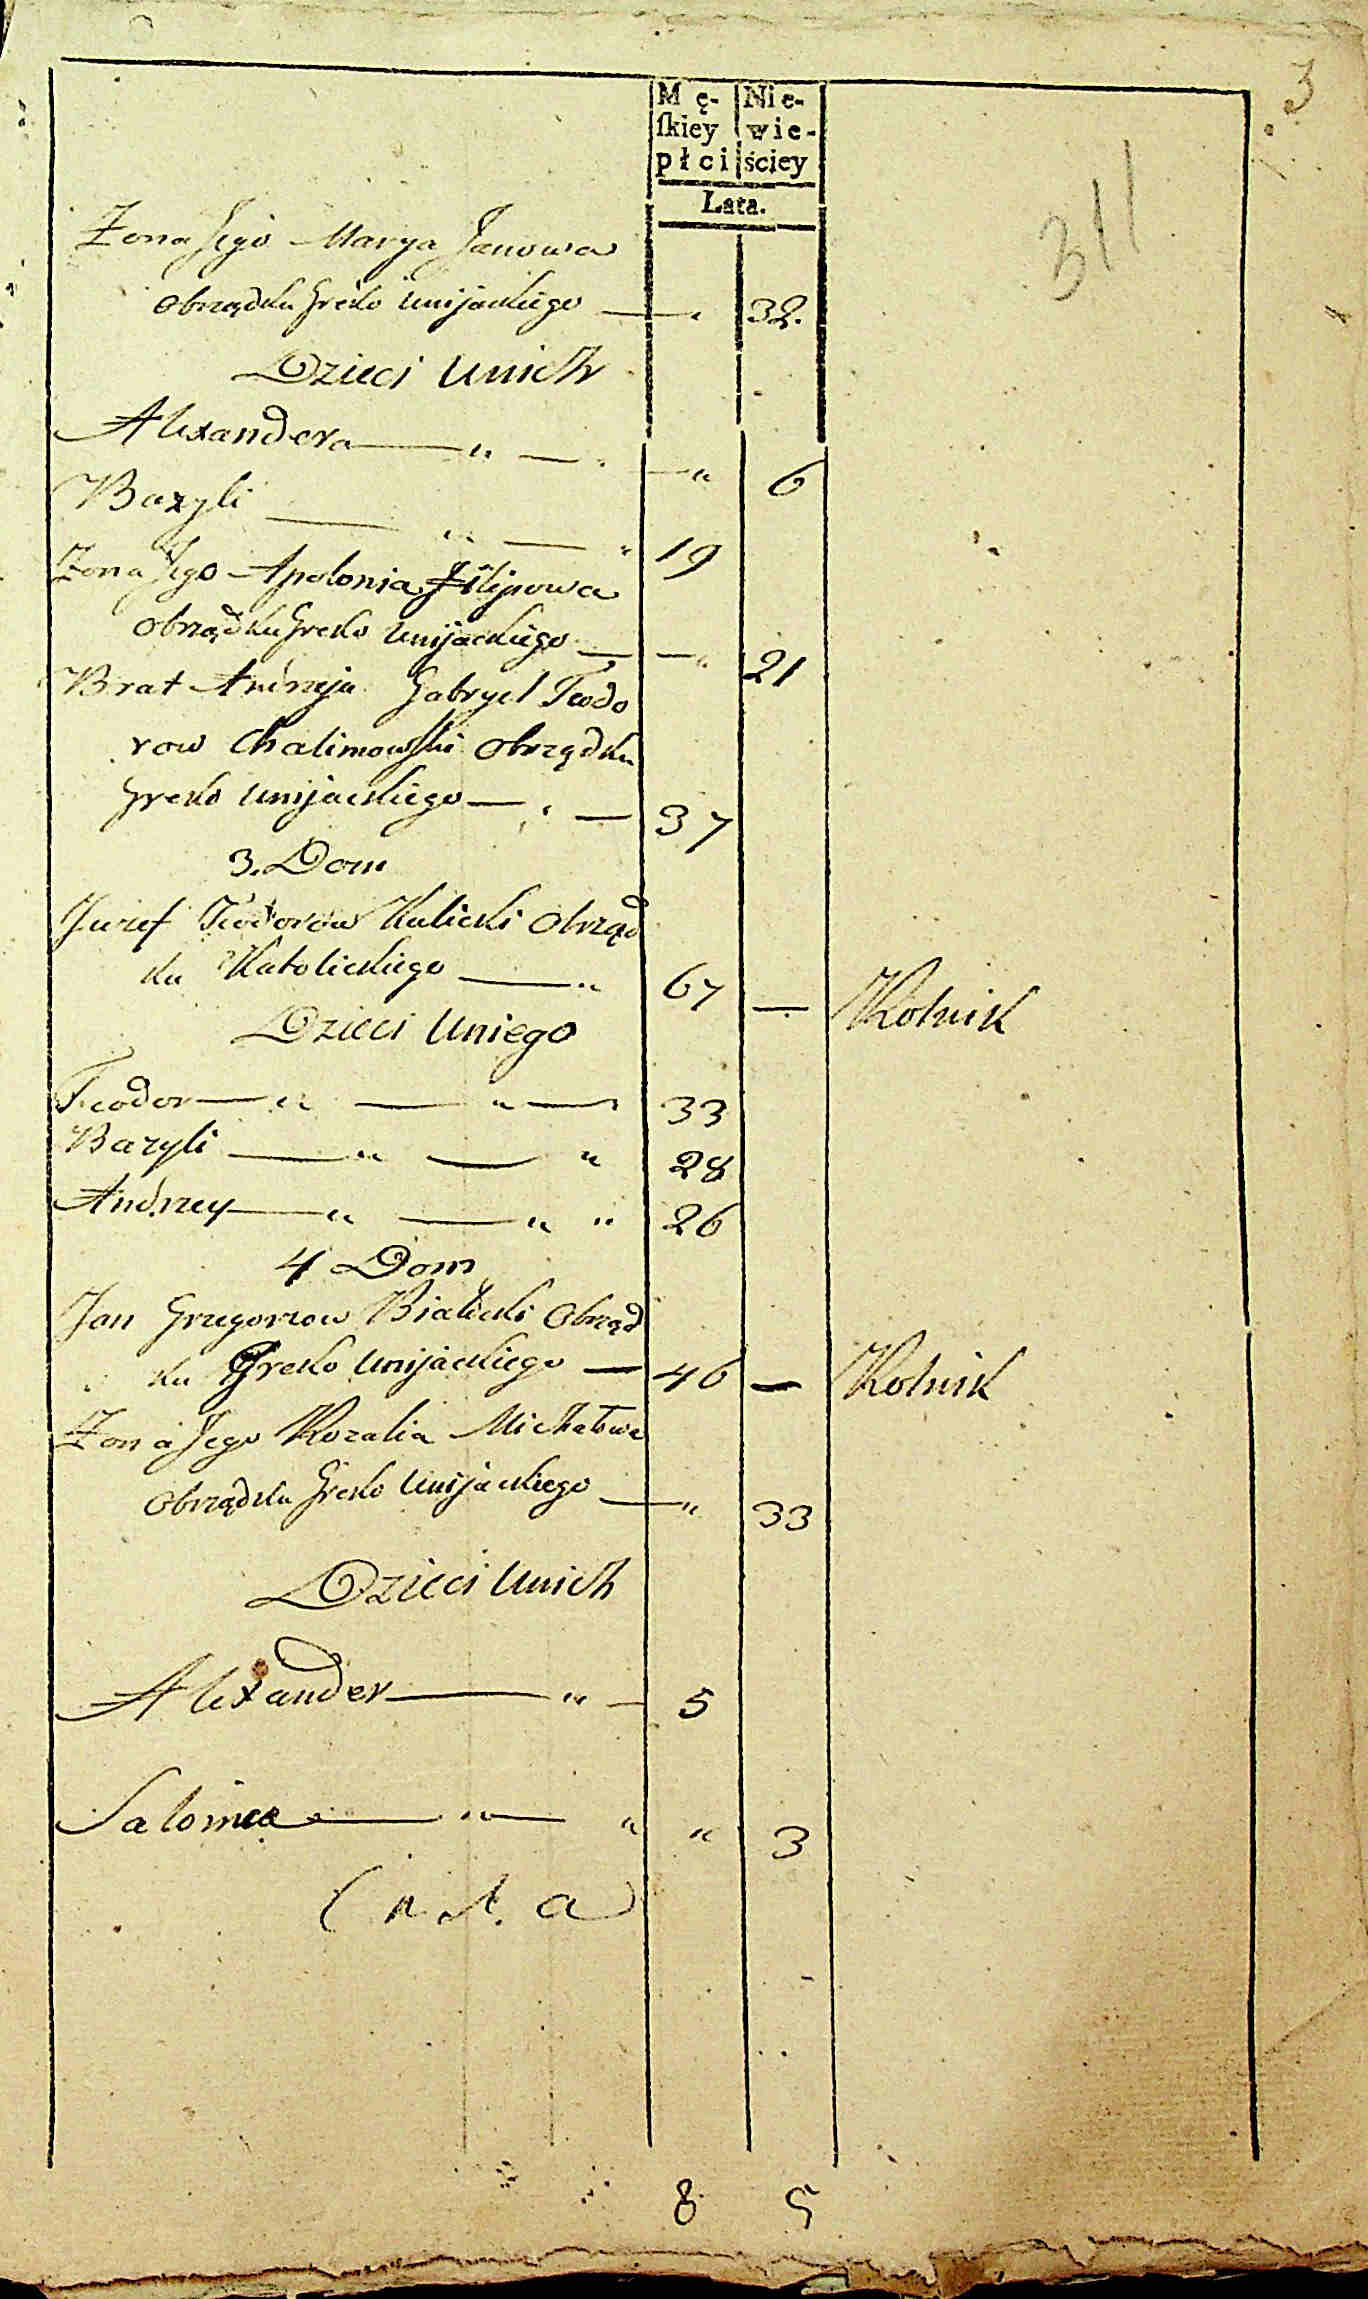 3
311
Mę- Nie-
ſkiey wie-
płci ściey
Lata.
Żona Jego Marya Janowa
Obrządku Greko Unijackiego — „ 32.
Dzieci Unich
Alexandera — „ — „ — „ 6
Bazyli — „ — „ 19
Żona Jego Apolonia Filipowa
Obrządku Greko Unijackiego — — „ 21
Brat Andrzeja Gabryel Teodo
row Chalimowski Obrządku
Greko Unijackiego — „ — 37
3. Dom
Juzef Teodorow Kulicki Obrząd
ku Katolickiego — „ 67 — Rolnik
Dzieci Uniego
Teodor — „ — „ — 33
Bazyli — „ — „ 28
Andrzey — „ — „ „ 26
4 Dom
Jan Grzegorzow Bialicki Obrząd
ku Greko Unijackiego — 46 — Rolnik
Żona Jego Rozalia Michałowa
Obrządku Greko Unijackiego — „ 33
Dzieci Unich
Alexander — „ — 5
Salomea — „ — „ „ 3
8 5